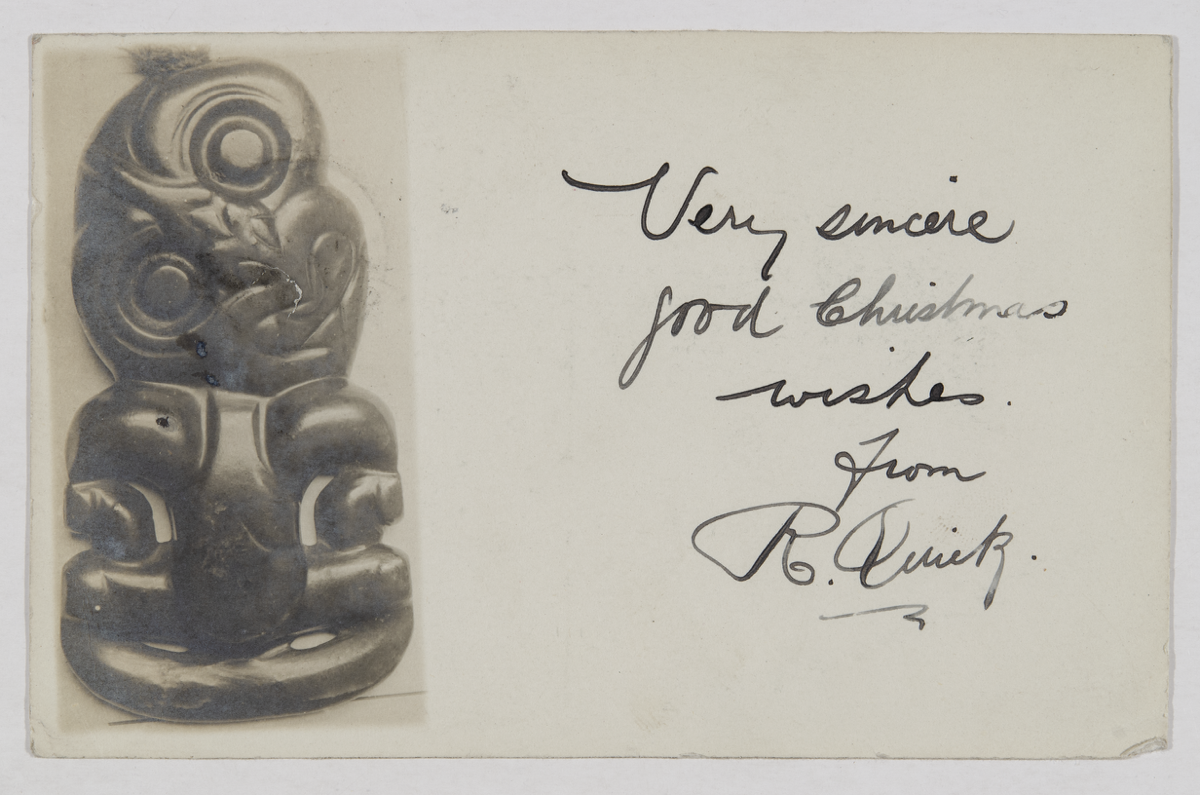 Very sincere
good Christmas
wishes.
from
R. Quick.